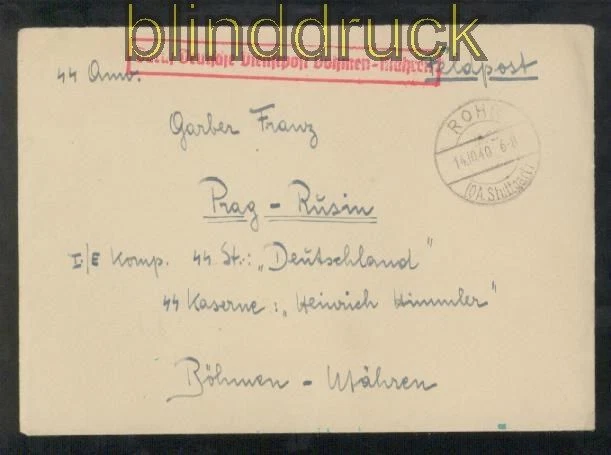 blinddruck
Durch Deutsche Dienstpost Böhmen-Mähren
Feldpost
44 Anw.
ROHR
14.10.40 6-8
(OA. Stuttgart)
Garber Franz
Prag - Rusin
I./E Komp. 44 St.: „Deutschland"
44 Kaserne: „Heinrich Himmler"
Böhmen - Mähren